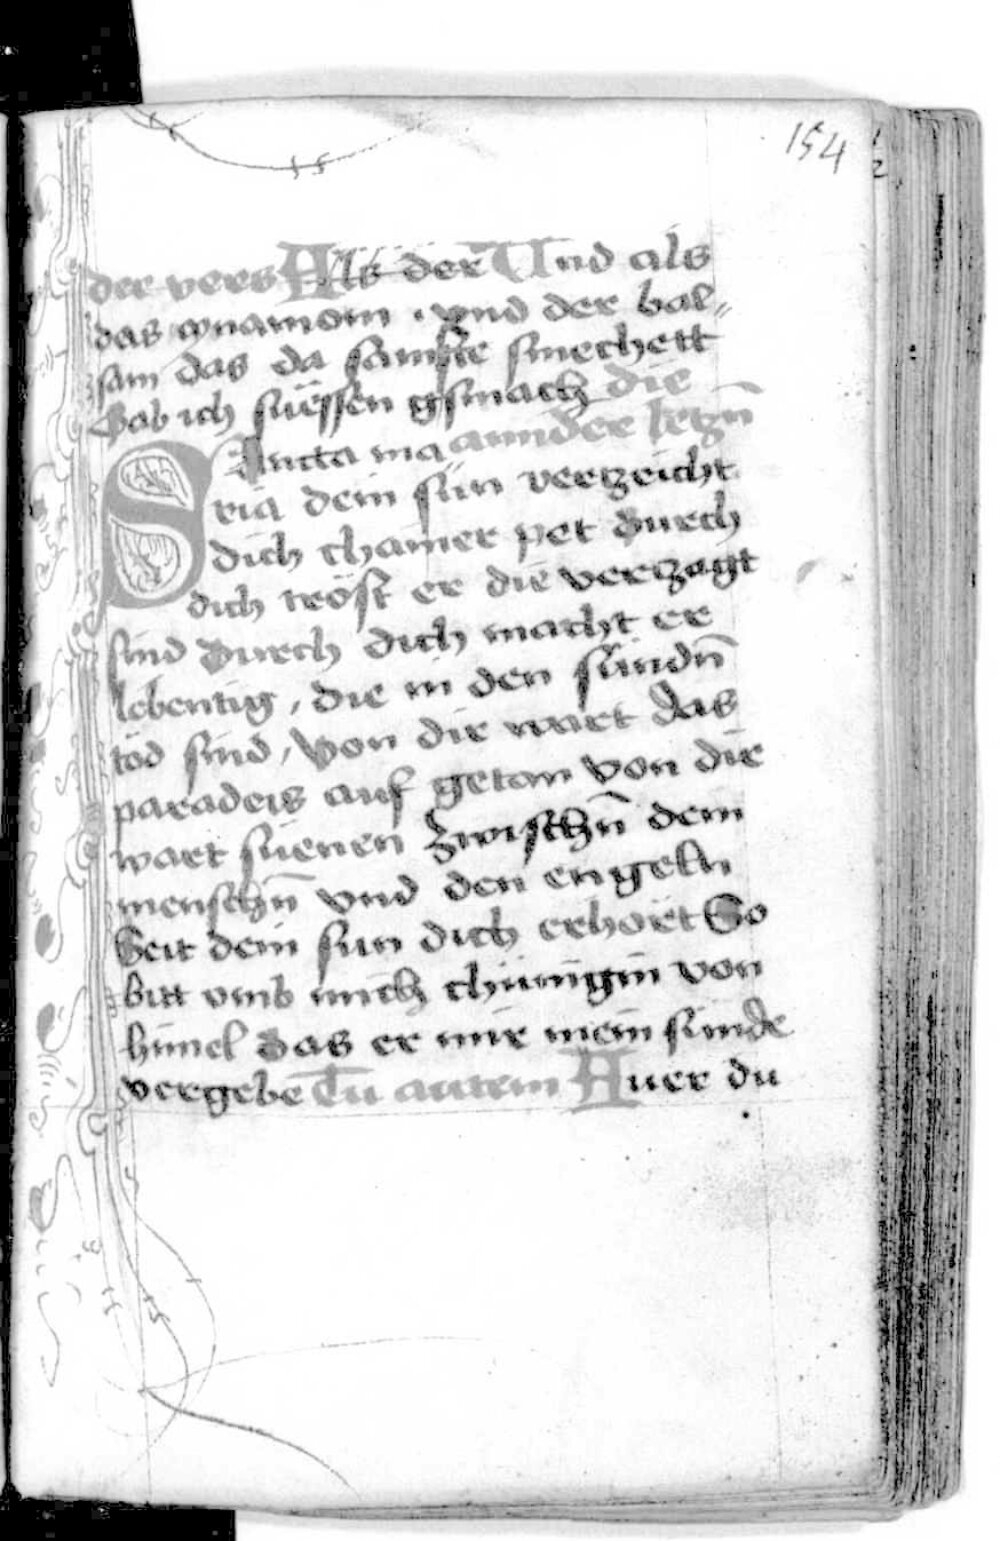 154
der vers Als der Und als
das cynamom · vnd der bal„
sam das da sämfte smechett
Gab ich süessen gsmach die
Sancta ma annder leczn̄
ria dein sün verzeicht
dich chamer pet Durch
dich tröst er die verzagt
sind Durch dich macht er
lebentig, die in den sündn̄
töd sind, Von dir wart das
paradeis auf getan von dir
wart süenen Zwischn̄ dem
menschn̄ vnd den engeln
Seit dein sun dich erhört So
bitt vmb mich chünigin von
himel Das er mir mein sünde
vergebe Tu autem Auer du